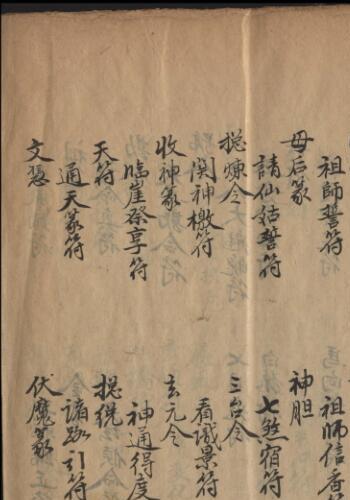 祖師誓符 祖师信香
母后篆 神胆
請仙姑誓符 七煞宿符
捴煉令 三台令
関神檄符 看識景符
收神篆 玄元令
臨崖祭享符 神通得度
天符 捴統
通天篆符 諸路引符
文憑 伏魔篆